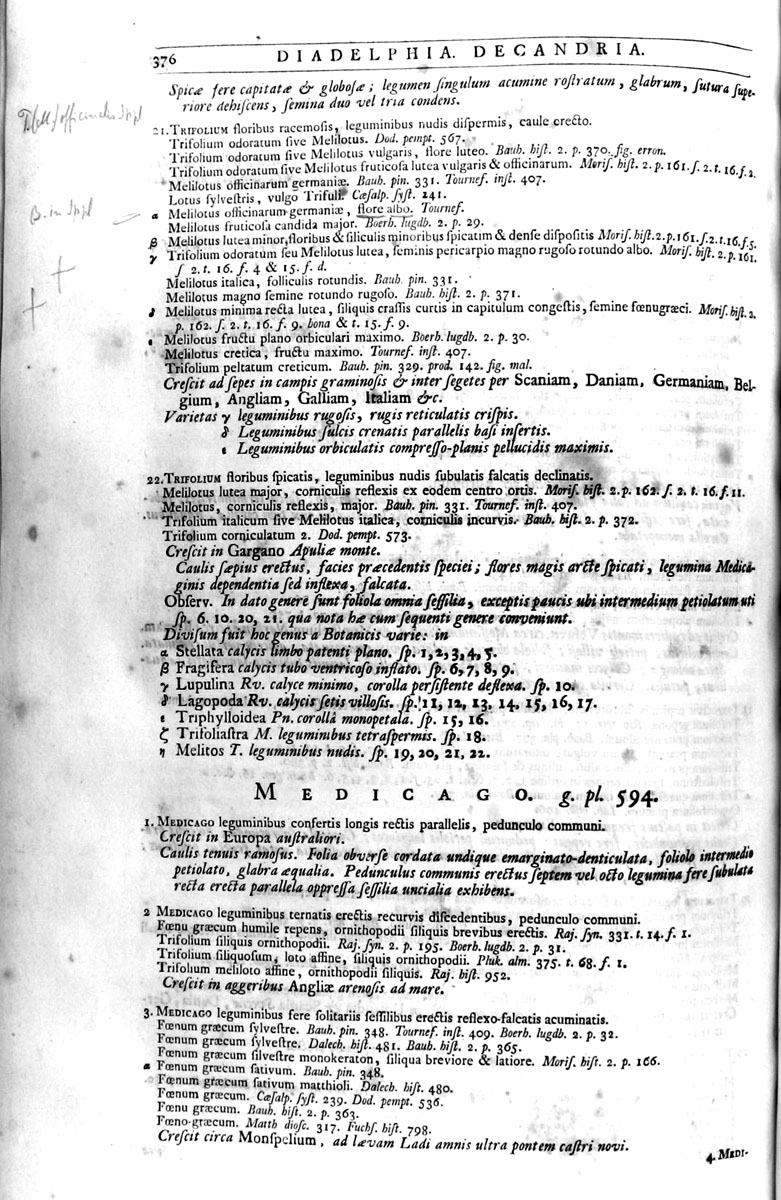 376 DIADELPHIA. DECANDRIA.
Spicæ fere capitatæ & globosæ; legumen singulum acumine rostratum, glabrum, sutura supe-
riore dehiscens, semina duo vel tria condens.
21. TRIFOLIUM floribus racemosis, leguminibus nudis dispermis, caule erecto.
Trifolium odoratum sive Melilotus. Dod. pempt. 567.
Trifolium odoratum sive Melilotus vulgaris, flore luteo. Bauh. hist. 2. p. 370. fig. erron.
Trifolium odoratum sive Melilotus fruticosa lutea vulgaris & officinarum. Moris. hist. 2. p. 161. s. 2. t. 16. f. 2.
Melilotus officinarum germaniæ. Bauh. pin. 331. Tournef. inst. 407.
Lotus sylvestris, vulgo Trifuli. Cæsalp. syst. 241.
β. in Sppl
α Melilotus officinarum germaniæ, flore albo. Tournef.
Melilotus fruticosa candida major. Boerh. lugdb. 2. p. 29.
β Melilotus lutea minor, floribus & siliculis minoribus spicatim & dense dispositis Moris. hist. 2. p. 161. s. 2. t. 16. f. 5.
γ Trifolium odoratum seu Melilotus lutea, seminis pericarpio magno rugoso rotundo albo. Moris. hist. 2. p. 161.
s 2. t. 16. f. 4 & 15. f. d.
Melilotus italica, folliculis rotundis. Bauh. pin. 331.
Melilotus magno semine rotundo rugoso. Bauh. hist. 2. p. 371.
δ Melilotus minima recta lutea, siliquis crassis curtis in capitulum congestis, semine fœnugræci. Moris. hist. 2.
p. 162. s. 2. t. 16. f. 9. bona & t. 15. f. 9.
ε Melilotus fructu plano orbiculari maximo. Boerh. lugdb. 2. p. 30.
Melilotus cretica, fructu maximo. Tournef. inst. 407.
Trifolium peltatum creticum. Bauh. pin. 329. prod. 142. fig. mal.
Crescit ad sepes in campis graminosis & inter segetes per Scaniam, Daniam, Germaniam, Bel-
gium, Angliam, Galliam, Italiam &c.
Varietas γ leguminibus rugosis, rugis reticulatis crispis.
δ Leguminibus sulcis crenatis parallelis basi insertis.
ε Leguminibus orbiculatis compresso-planis pellucidis maximis.
22. TRIFOLIUM floribus spicatis, leguminibus nudis subulatis falcatis declinatis.
Melilotus lutea major, corniculis reflexis ex eodem centro ortis. Moris. hist. 2. p. 162. s. 2. t. 16. f. 11.
Melilotus, corniculis reflexis, major. Bauh. pin. 331. Tournef. inst. 407.
Trifolium italicum sive Melilotus italica, corniculis incurvis. Bauh. hist. 2. p. 372.
Trifolium corniculatum 2. Dod. pempt. 573.
Crescit in Gargano Apuliæ monte.
Caulis sæpius erectus, facies præcedentis speciei; flores magis arcte spicati, legumina Medica-
ginis dependentia sed inflexa, falcata.
Observ. In dato genere sunt foliola omnia sessilia, exceptis paucis ubi intermedium petiolatum uti
sp. 6. 10. 20, 21. qua nota hæ cum sequenti genere conveniunt.
Divisum fuit hoc genus a Botanicis varie: in
α Stellata calycis limbo patenti plano. sp. 1, 2, 3, 4, 5.
β Fragifera calycis tubo ventricoso inflato. sp. 6, 7, 8, 9.
γ Lupulina Rv. calyce minimo, corolla persistente deflexa. sp. 10.
δ Lagopoda Rv. calycis setis villosis. sp. 11, 12, 13, 14, 15, 16, 17.
ε Triphylloidea Pn. corollâ monopetala. sp. 15, 16.
ζ Trifoliastra M. leguminibus tetraspermis. sp. 18.
η Melitos T. leguminibus nudis. sp. 19, 20, 21, 22.
MEDICAGO. g. pl. 594.
1. MEDICAGO leguminibus confertis longis rectis parallelis, pedunculo communi.
Crescit in Europa australiori.
Caulis tenuis ramosus. Folia obverse cordata undique emarginato-denticulata, foliolo intermedio
petiolato, glabra æqualia. Pedunculus communis erectus septem vel octo legumina fere subulata
recta erecta parallela oppressa sessilia uncialia exhibens.
2 MEDICAGO leguminibus ternatis erectis recurvis discedentibus, pedunculo communi.
Fœnu græcum humile repens, ornithopodii siliquis brevibus erectis. Raj. syn. 331. t. 14. f. 1.
Trifolium siliquis ornithopodii. Raj. syn. 2. p. 195. Boerh. lugdb. 2. p. 31.
Trifolium siliquosum, loto affine, siliquis ornithopodii. Pluk. alm. 375. t. 68. f. 1.
Trifolium meliloto affine, ornithopodii siliquis. Raj. hist. 952.
Crescit in aggeribus Angliæ arenosis ad mare.
3. MEDICAGO leguminibus fere solitariis sessilibus erectis reflexo-falcatis acuminatis.
Fœnum græcum sylvestre. Bauh. pin. 348. Tournef. inst. 409. Boerh. lugdb. 2. p. 32.
Fœnum græcum sylvestre. Dalech. hist. 481. Bauh. hist. 2. p. 365.
Fœnum græcum silvestre monokeraton, siliqua breviore & latiore. Moris. hist. 2. p. 166.
α Fœnum græcum sativum. Bauh. pin. 348.
Fœnum græcum sativum matthioli. Dalech. hist. 480.
Fœnum græcum. Cæsalp. syst. 239. Dod. pempt. 536.
Fœnu græcum. Bauh. hist. 2. p. 363.
Fœno-græcum. Matth diosc. 317. Fuchs. hist. 798.
Crescit circa Monspelium, ad lævam Ladi amnis ultra pontem castri novi.
4. MEDI-